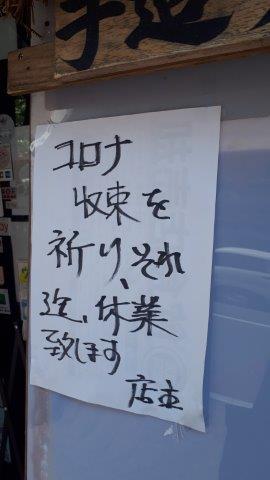 手造
コロナ
収束を
祈り、それ
迄、休業
致します
店主